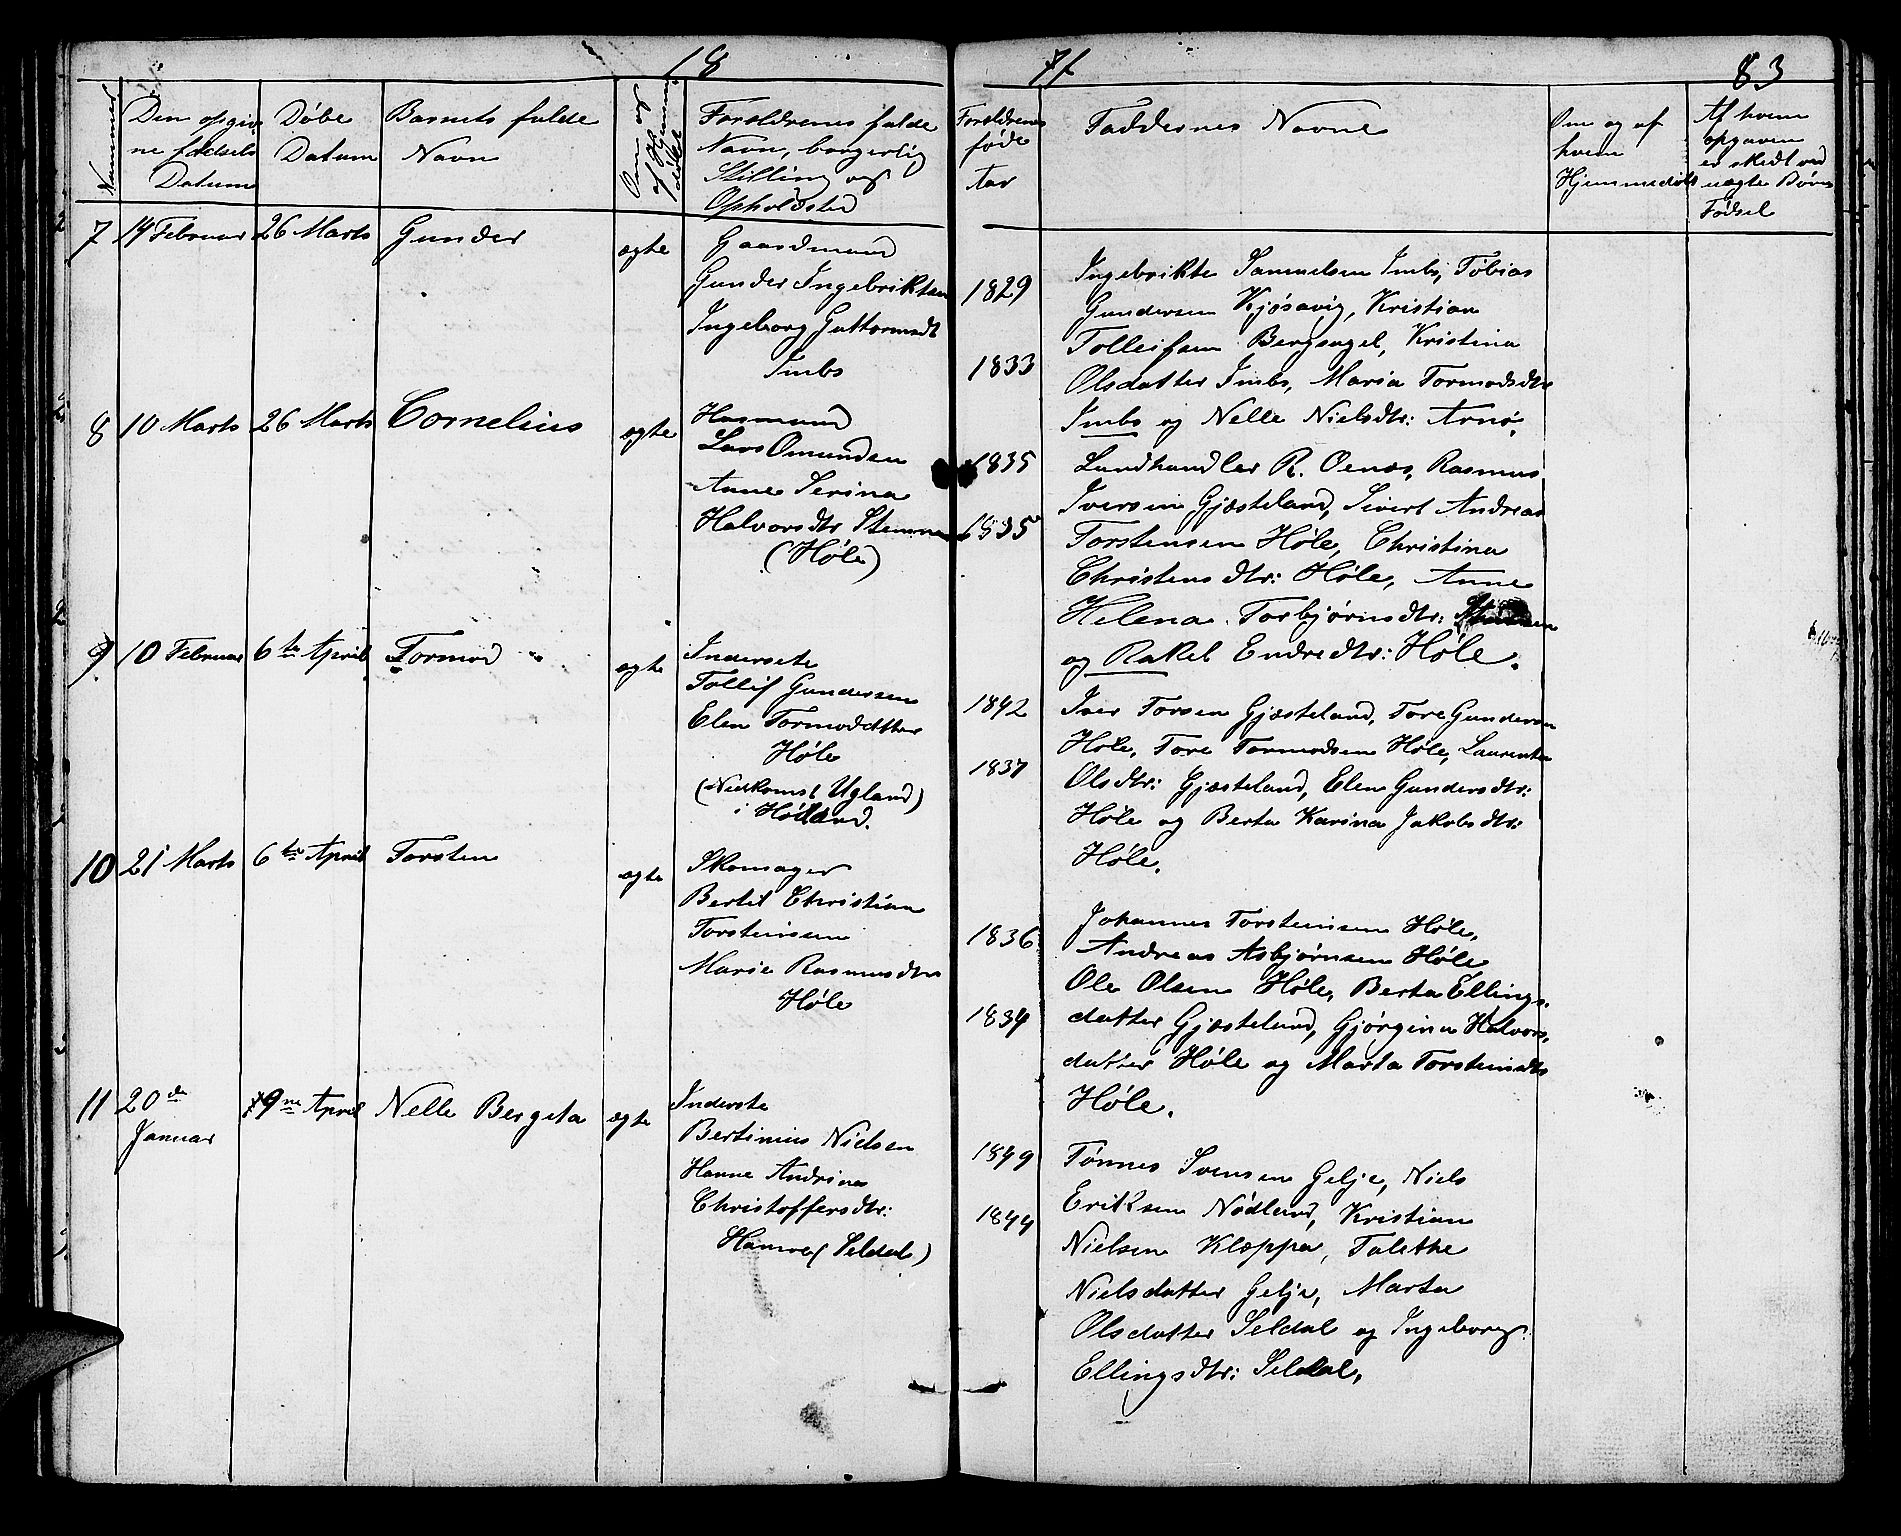 18
71
83
Nummer
Den opgiv
ne födsels
Datum
Döbe
Datum
Barnets fulde
Navn
Om og
af Hv
Hjemme
döbt
Forældrenes fulde
Navn, borgerlig
Stilling og
Opholdsted
Forældrenes
føde
aar
Faddernes Navne
Om og af
hvem
Hjemmedöbt
Af hvem
opgaven
er skedt ved
uægte Börns
Födsel
7 14 Februar 26 Marts Gunder ægte
Gaardmand
Gunder Ingebriktsen
Ingeborg Guttormsdt
Imbs
1829
1833
Ingebrikte Samuelsen Imbs, Tobias
Gundersen Kjösavig, Kristian
Tolleifsen Bergsagel, Kristina
Olsdatter Imbs, Maria Tormodsdtr
Imbs og Nelle Nielsdtr: Arnö.
8 10 Marts 26 Marts Cornelius ægte
Husmand
Lars Omundsen
Anne Serina
Halvorsdtr Stemmen
(Höle)
1835
1835
Landhandler R. Oenæs, Rasmus
Iversen Gjæsteland, Sivert Andreas
Torstensen Höle, Christina
Christensdtr: Höle, Anne
Helena Torbjörnsdtr:
og Rakel Endredtr: Höle.
9 10 Februar 6te April Tormod ægte
Inderste
Tollif Gundersen
Elen Tormoddatter
Höle
(Nedkomst Ugland)
i Hölland.
1842
1837
Iver Torsen Gjæsteland, Tore Gundersen
Höle, Tore Tormodsen Höle, Laurentse
Olsdtr: Gjæsteland, Elen Gundersdtr:
Höle og Berta Karina Jakobsdtr:
Höle.
10 21 Marts 6te April Torsten ægte
Skomager
Bertil Christian
Torsteinsen
Marie Rasmusdtr
Höle
1836
1834
Johannes Torsteinsen Höle,
Andreas Asbjörnsen Höle
Ole Olsen Höle, Berta Ellings-
datter Gjæsteland, Gjörgina Halvors-
datter Höle og Marta Torsteinsdtr
Höle.
11 20de
Januar
9ne April Nelle Bergita ægte
Inderste
Bertinius Nielsen
Hanne Andrina
Christoffersdtr:
Hamre (Seldal)
1849
1844
Tönnes Svensen Gelje, Niels
Eriksen Nödland, Kristian
Nielsen Kleppa, Talethe
Nielsdatter Gelje, Marta
Olsdatter Seldal og Ingeborg
Ellingsdtr: Seldal.